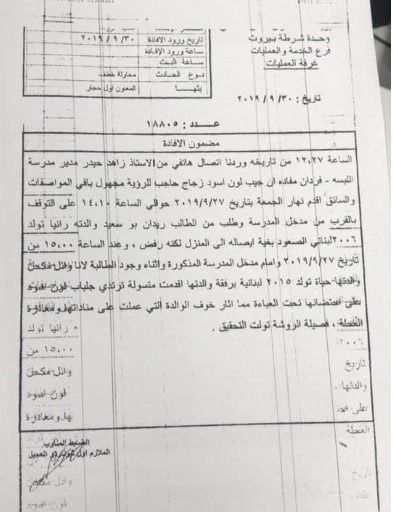 وحدة شرطة بيروت
فرع الخدمة والعمليات
غرفة العمليات
تاريخ ورود الافادة ٢٠١٩/٩/٣٠
ساعة ورود الإفادة
ساعة البث
نوع الحادث محاولة خطف
بثها المعاون اول حجار
تاريخ : ٢٠١٩/٩/٣٠
عدد : ١٨٨٠٥
مضمون الافادة
الساعة ١٢،٢٧ من تاريخه وردنا اتصال هاتفي من الاستاذ زاهد حيدر مدير مدرسة
الليسه - فردان مفاده ان جيب لون اسود زجاج حاجب للرؤية مجهول باقي المواصفات
والسائق اقدم نهار الجمعة بتاريخ ٢٠١٩/٩/٢٧ حوالي الساعة ١٤،١٠ على التوقف
بالقرب من مدخل المدرسة وطلب من الطالب ريدان بو سعيد والدته رانيا تولد
٢٠٠٦ لبناني الصعود بغية ايصاله الى المنزل لكنه رفض ، وعند الساعة ١٥،٠٠ من
تاريخ ٢٠١٩/٩/٢٧ وامام مدخل المدرسة المذكورة واثناء وجود الطالبة لانا وائل مكحل
والدتها حياة تولد ٢٠١٥ لبنانية برفقة والدتها اقدمت متسولة ترتدي جلباب لون اسود
على احتضانها تحت العباءة مما اثار خوف الوالدة التي عملت على مناداتها ومغادرة
المحلة ، فصيلة الروشة تولت التحقيق .
رانيا تولد
٢٠٠٦
١٥،٠٠ من
تاريخ
وائل مكحل
والدتها
لون اسود
على
نها ومغادرة
المحلة
الضابط المناوب
الملازم اول
تاريخ
وائل مكحل
والدتها
لون اسود